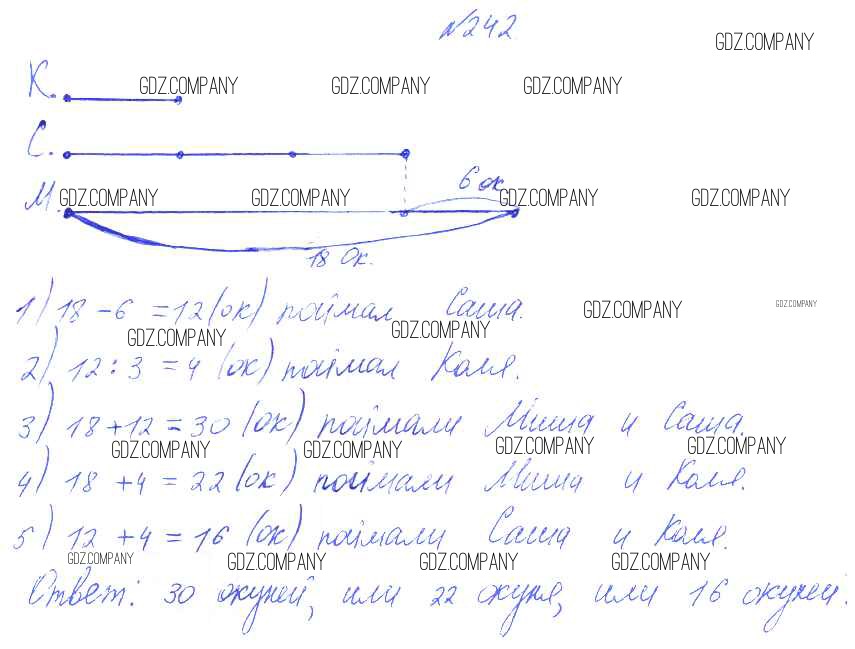 №242
GDZ.COMPANY
К. GDZ.COMPANY GDZ.COMPANY GDZ.COMPANY
С.
6 ок
М. GDZ.COMPANY GDZ.COMPANY GDZ.COMPANY GDZ.COMPANY
18 ок.
1) 18 - 6 = 12 (ок) поймал Саша. GDZ.COMPANY GDZ.COMPANY
GDZ.COMPANY GDZ.COMPANY
2) 12 : 3 = 4 (ок) поймал Коля.
3) 18 + 12 = 30 (ок) поймали Миша и Саша.
GDZ.COMPANY GDZ.COMPANY GDZ.COMPANY GDZ.COMPANY
4) 18 + 4 = 22 (ок) поймали Миша и Коля.
5) 12 + 4 = 16 (ок) поймали Саша и Коля.
GDZ.COMPANY GDZ.COMPANY GDZ.COMPANY GDZ.COMPANY
Ответ: 30 окуней, или 22 окуня, или 16 окуней.